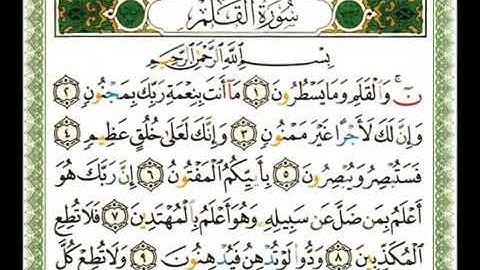 سُورَةُ القَلَمِ
بِسْمِ ٱللَّهِ ٱلرَّحْمَٰنِ ٱلرَّحِيمِ
نٓ ۚ وَٱلْقَلَمِ وَمَا يَسْطُرُونَ ۝١ مَآ أَنتَ بِنِعْمَةِ رَبِّكَ بِمَجْنُونٍ ۝٢
وَإِنَّ لَكَ لَأَجْرًا غَيْرَ مَمْنُونٍ ۝٣ وَإِنَّكَ لَعَلَىٰ خُلُقٍ عَظِيمٍ ۝٤
فَسَتُبْصِرُ وَيُبْصِرُونَ ۝٥ بِأَييِّكُمُ ٱلْمَفْتُونُ ۝٦ إِنَّ رَبَّكَ هُوَ
أَعْلَمُ بِمَن ضَلَّ عَن سَبِيلِهِۦ وَهُوَ أَعْلَمُ بِٱلْمُهْتَدِينَ ۝٧ فَلَا تُطِعِ
ٱلْمُكَذِّبِينَ ۝٨ وَدُّوا۟ لَوْ تُدْهِنُ فَيُدْهِنُونَ ۝٩ وَلَا تُطِعْ كُلَّ